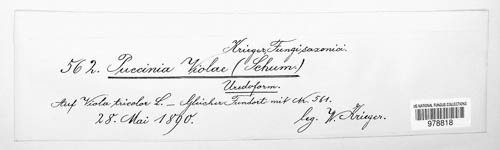 Krieger, Fungi saxonici.
562. Puccinia Violae (Schum.)
Uredoform.
Auf Viola tricolor L. — Gleicher Fundort mit Nr. 561.
28. Mai 1890. leg. W. Krieger.
US NATIONAL FUNGUS COLLECTIONS
978818